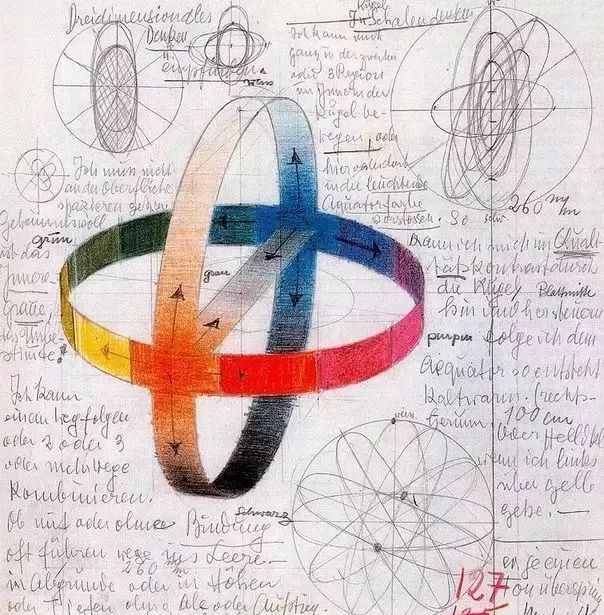 Dreidimensionales
Denken
empfindungen
weiss
Kugel
In Schalendenken
Ich kann mich
ganz in der zweiten
oder 3 Region
im Innern der
Kugel be-
wegen, oder
hin
in die leuchtende
Aquatorfarbe
vorstossen. So
weiss
schw.
260 mm
Ich muss nicht
an der Oberfläche
spazieren gehen.
Geheimnisvoll
grün
ist das
Innere
Graue,
das Unbe-
stimte!
grau
kann ich mich im Quali-
tätskontrast durch
die Kugel
Blattmitte
hin und her bewegen
purpur
folge ich dem
Aequator so entsteht
Kaltwarm. (rechts-
herum)
100 cm
oder Hell
wenn ich links
über gelb
gehe. —
Ich kann
einen Weg folgen
oder 2 oder 3
oder mehr Wege
kombinieren.
Ob mit oder ohne Bindung
schwarz
oft führen Wege ins Leere.
260 mm
in Abgründe oder in Höhen
oder Tiefen ohne alle oder Aufstieg.
weiss
127